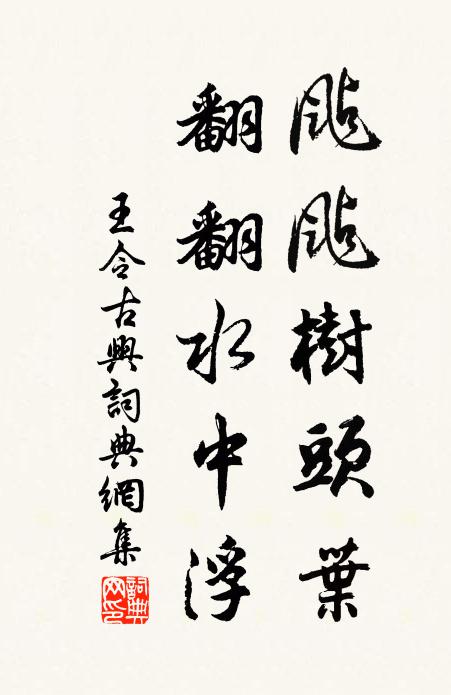 颭颭樹頭葉
翻翻水中浮
王令古興詞典網集
詞典網印